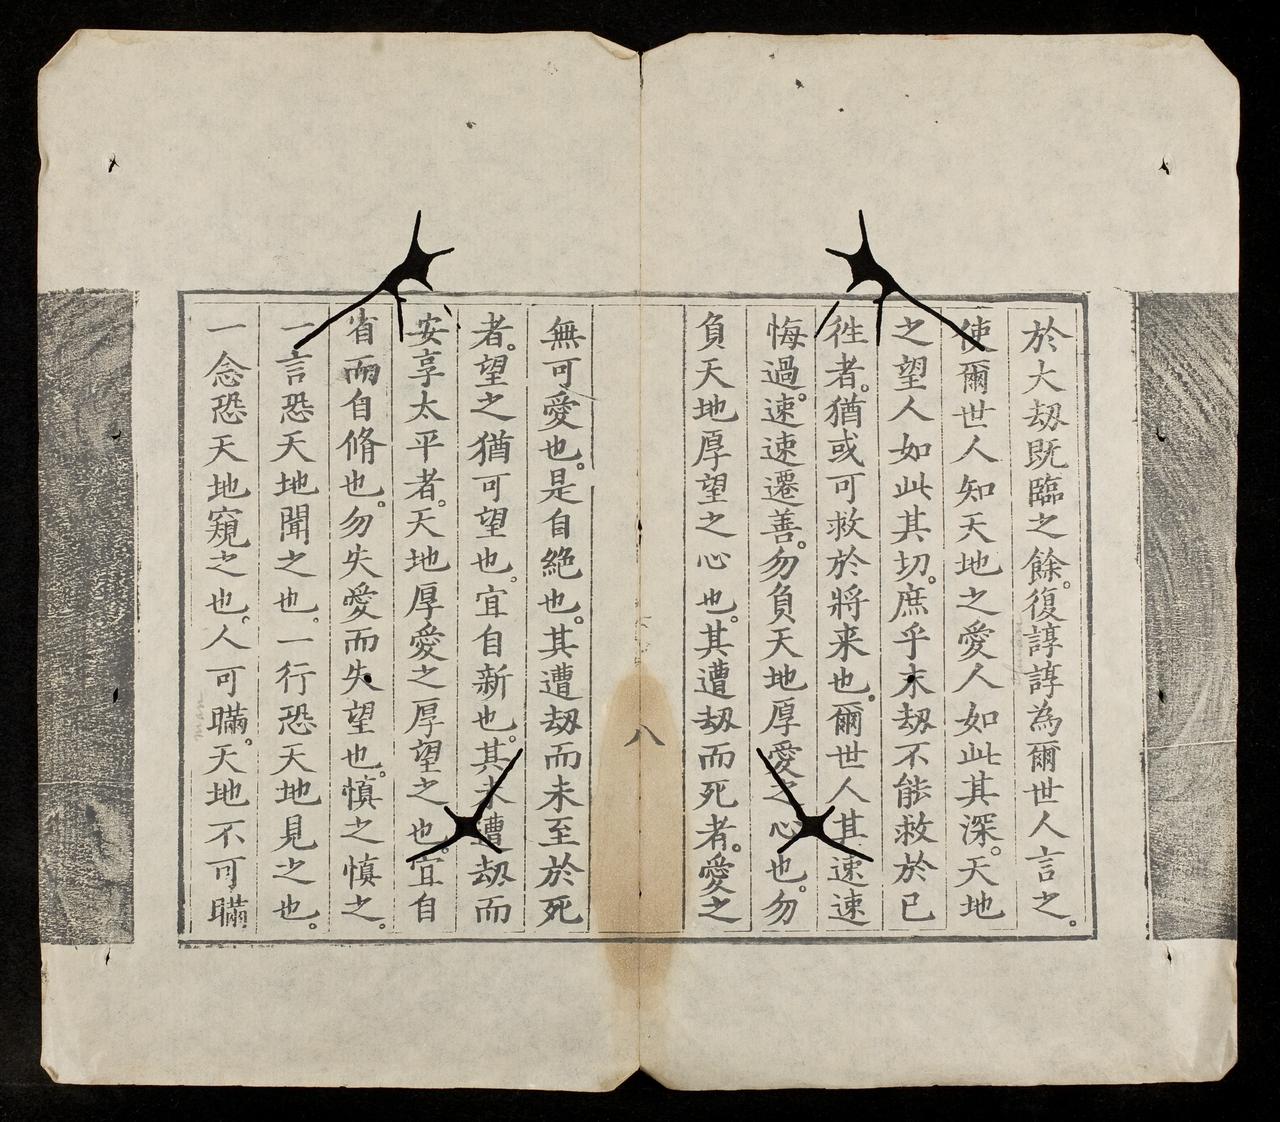 於大刼既臨之餘。復諄諄為爾世人言之。
使爾世人知天地之愛人如此其深。天地
之望人如此其切。庶乎末刼不能救於已
徃者。猶或可救於將来也。爾世人其速速
悔過。速速遷善。勿負天地厚愛之心也。勿
負天地厚望之心也。其遭刼而死者。愛之
八
無可愛也。是自絶也。其遭刼而未至於死
者。望之猶可望也。宜自新也。其未遭刼而
安享太平者。天地厚愛之厚望之也。宜自
省而自脩也。勿失愛而失望也。慎之慎之。
一言恐天地聞之也。一行恐天地見之也。
一念恐天地窺之也。人可瞞。天地不可瞞